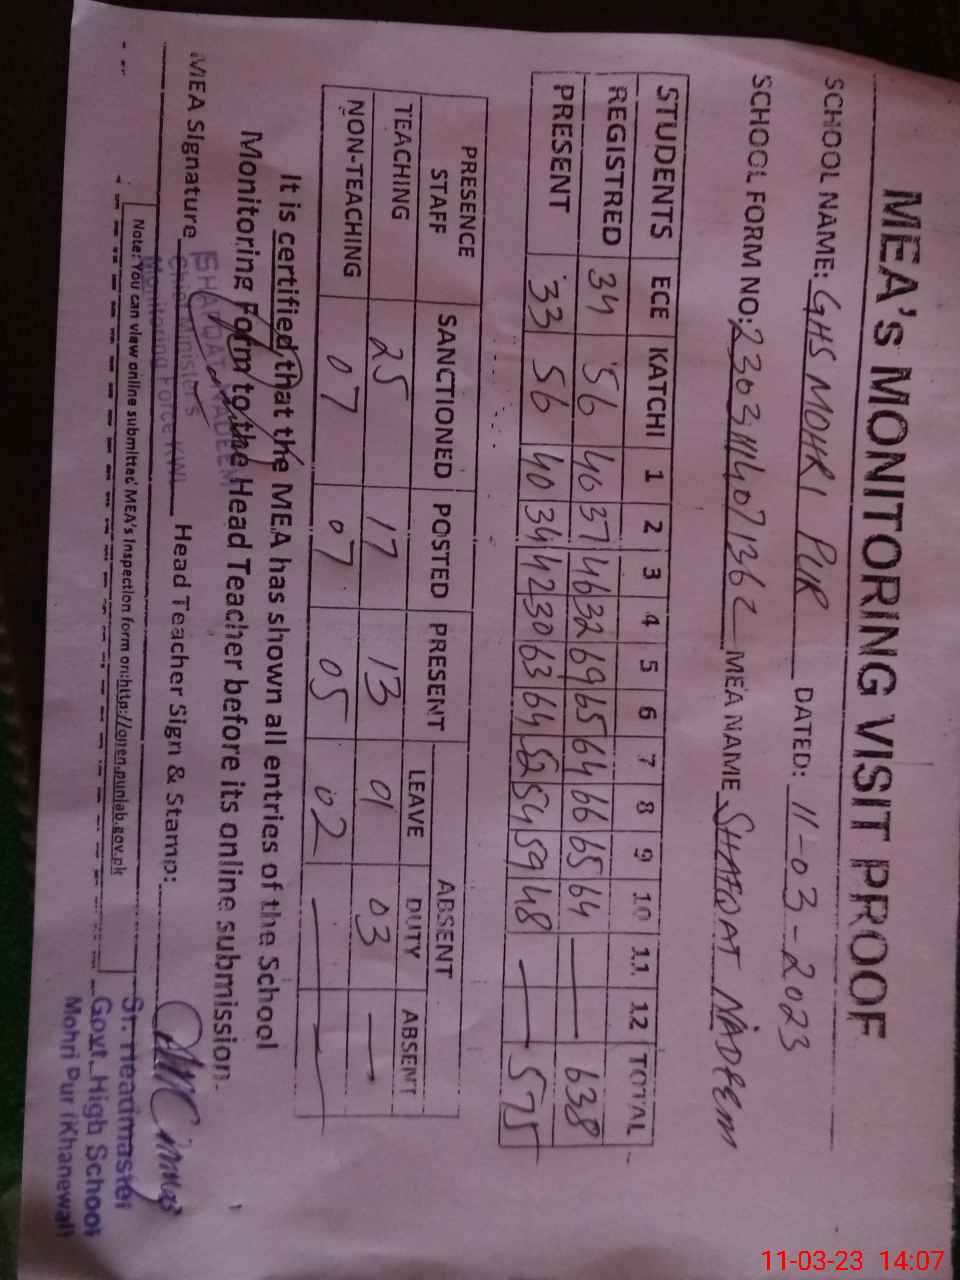 MEA's MONITORING VISIT PROOF
SCHOOL NAME: GHS MOHRI PUR DATED: 11-03-2023
SCHOOL FORM NO: MEA NAME SHAFQAT NADEEM
STUDENTS ECE KATCHI 1 2 3 4 5 6 7 8 9 10 11 12 TOTAL
REGISTRED 34 56 40 37 46 32 69 65 64 66 65 64 — 638
PRESENT 33 56 40 34 42 30 63 64 52 54 59 48 — 575
PRESENCE STAFF SANCTIONED POSTED PRESENT ABSENT
LEAVE DUTY ABSENT
TEACHING 25 17 13 01 03 —
NON-TEACHING 07 07 05 02 — —
It is certified that the MEA has shown all entries of the School
Monitoring Form to the Head Teacher before its online submission.
SHAFQAT NADEEM
Chief Minister's
Monitoring Force KWL
MEA Signature Head Teacher Sign & Stamp:
Note: You can view online submitted MEA's Inspection form on:http://open.punjab.gov.pk
Sr. Headmaster
Govt. High School
Mohri Pur (Khanewal)
11-03-23 14:07